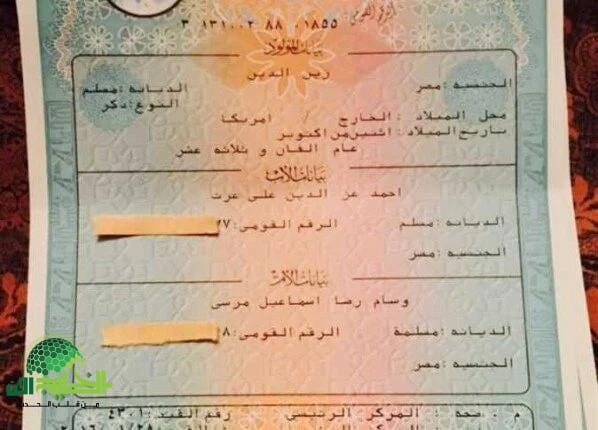 ٣ ١٣١٠٠٢ ٨٨ ٠١٨٥٥
بيانات المولود
زين الدين
الجنسيه : مصر
الديانه : مسلم
النوع : ذكر
محل الميلاد : الخارج / امريكا
تاريخ الميلاد : اثنين من اكتوبر
عام الفان و ثلاثه عشر
بيانات الأب
احمد عز الدين على عزت
الديانه : مسلم الرقم القومى :
الجنسيه : مصر
بيانات الأم
وسام رضا اسماعيل مرسى
الديانه : مسلمة الرقم القومى :
الجنسيه : مصر
م . صحه : المركز الرئيسى رقم القيد : ٤٣٠١
الخليج الان
من قلب الحدث